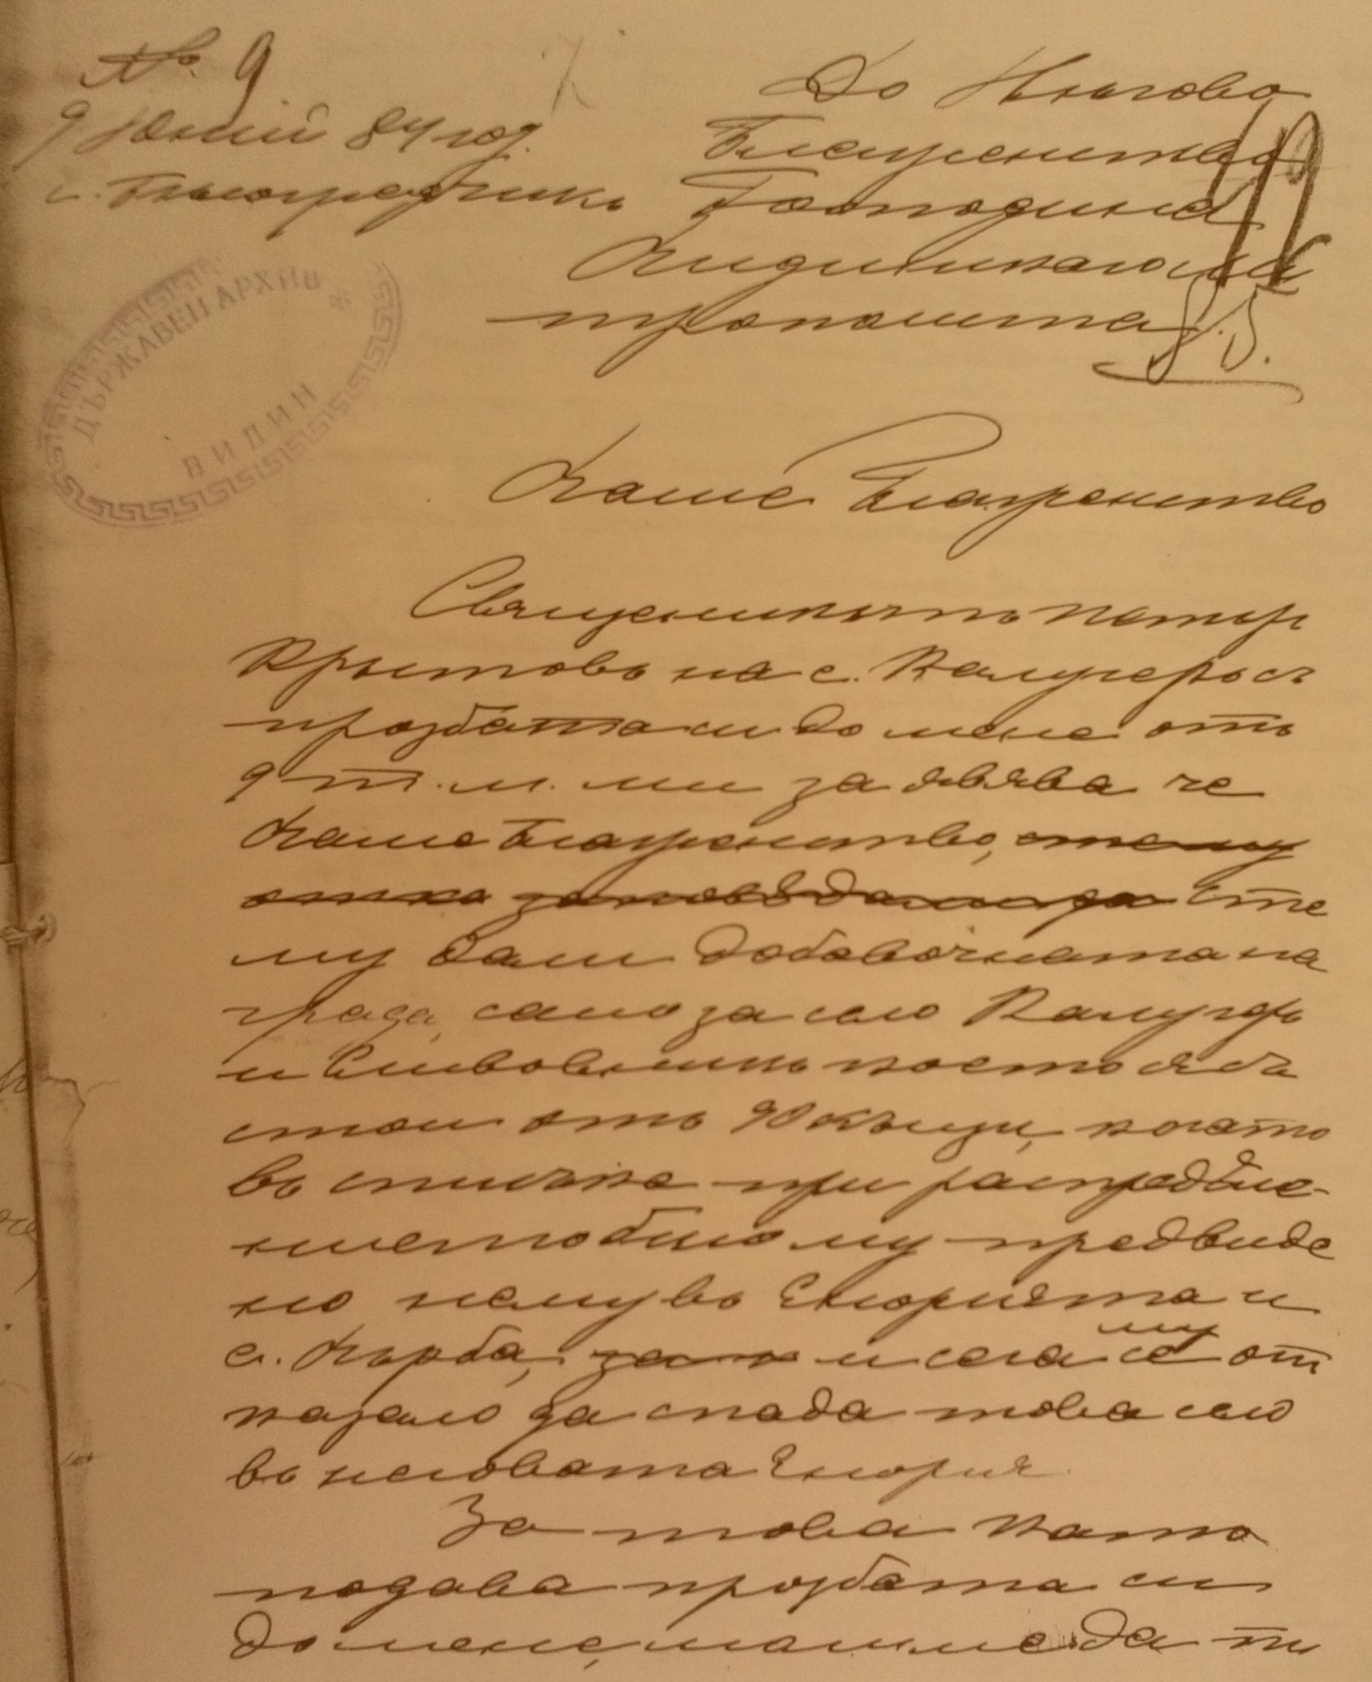 № 9
9 Юний 84 год.
с. Бѣлоградчикъ
До Нѣгово
Благоренство
Господина
Видинскаго ми
трополита
ДЪРЖАВЕН АРХИВ *
ВИДИН
Ваше Благоренство
Священикътъ Петър
Кръстовъ на с. Калугеръ съ
прозбата си до мене отъ
9 т. м. ми заявява че
Ваше Благоренство,
сте
му дали добавочната на
града, само за село Калугеръ
и
стои отъ 90 къщи, когато
въ списъка при распредѣле-
нието било му предвиде
но нему въ Енорията и
с. Върба, и сега се му от
казало да спада това село
въ неговата Енория.
За това като
подава прозбата си
до мене, моли ме да